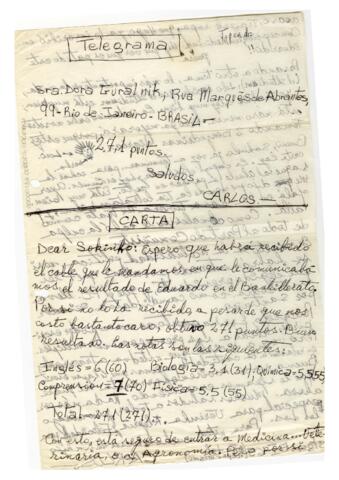 Telegrama
Sra. Dora Guralnik, Rua Marqués de Abrantes,
99- Rio de Janeiro - BRASIL -
271 puntos.
Saludos
CARLOS -
CARTA
Dear Sokinho: Espero que habrá recibido
el cable que le mandamos, en que le comunicába
mos, el resultado de Eduardo en el Bachillerato,
Por si no lo ha recibido, a pesar de que nos
costó bastante caro, obtuvo 271 puntos. Buen
resultado. Las notas son las siguientes:
Inglés = 6 (60) Biología = 3,1 (31), Química = 5,5 55,
Comprensión = 7 (70) Física = 5,5 (55)
Total - 271 (271)...
Con esto, está seguro de entrar a Medicina... Vete
rinaria, o a Agronomía. Pero por si